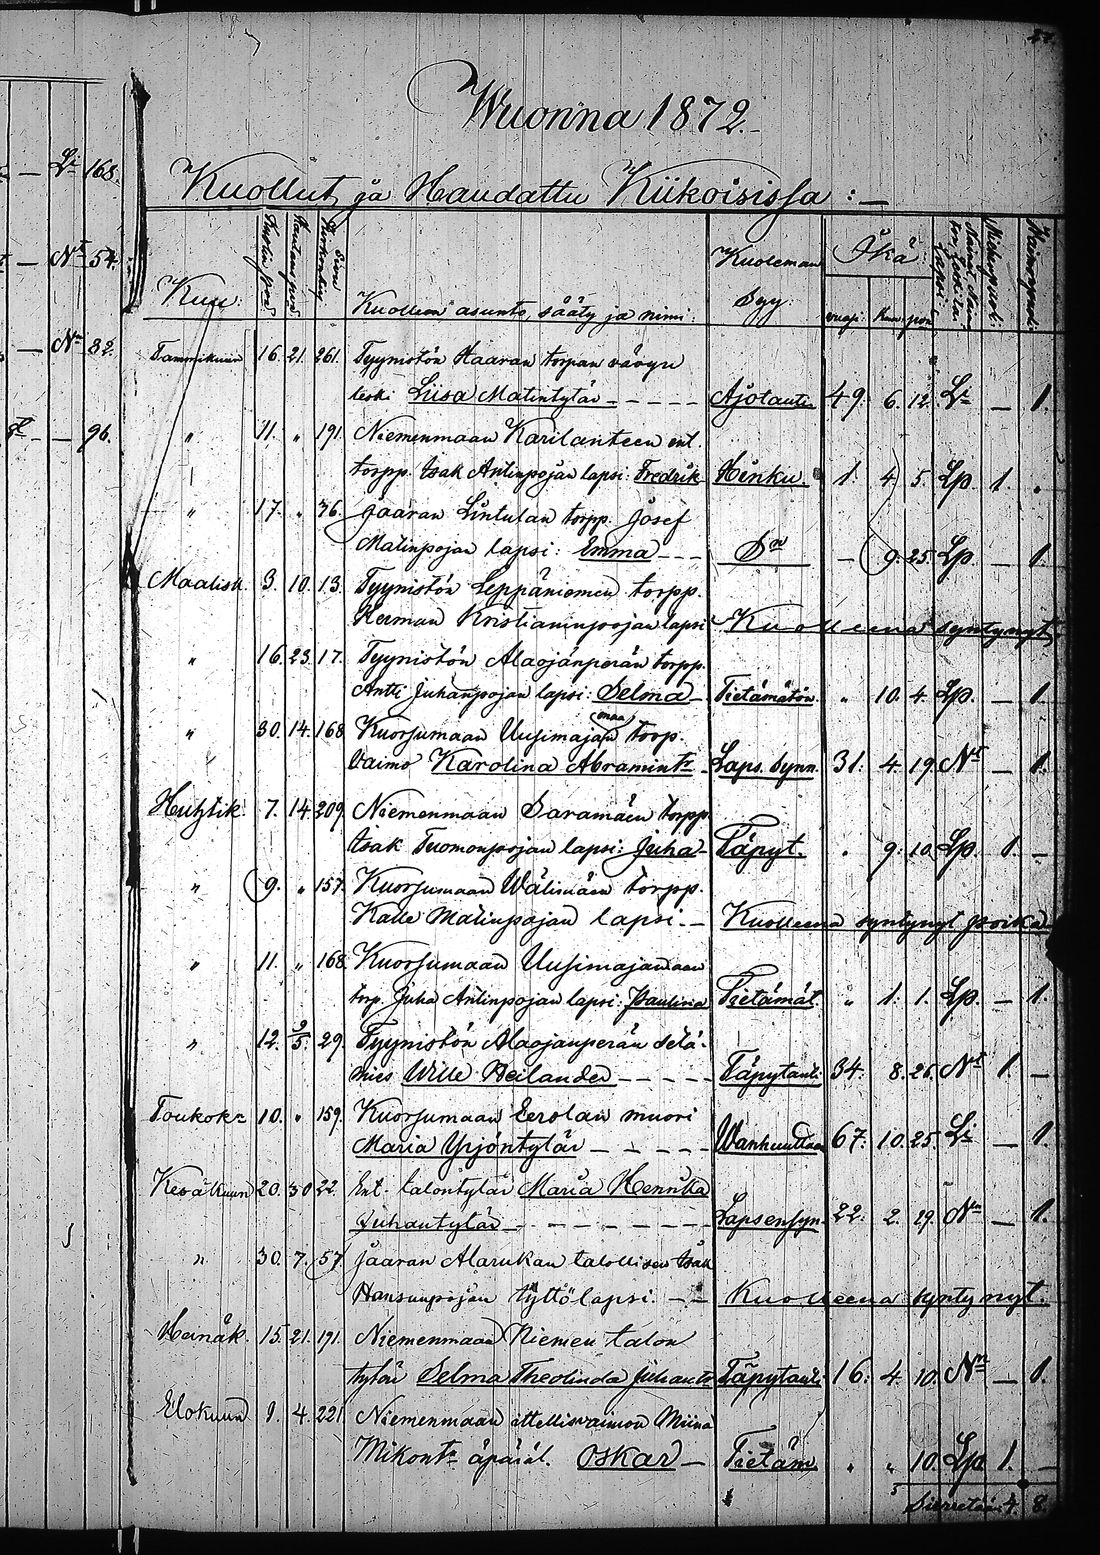 Li 168.
Nt 54.
Nn 82.
96.
Wuonna 1872.
Kuollut ja Haudattu Kiikoisissa:
Kuu:
Kuolleen asunto, sääty ja nimi:
Kuoleman Syy:
Ikä
Miehenpuoli.
Waimonpuoli.
Tammikuun 16. 21. 261. Tyynistön Haaran torpan vävyn
leski Liisa Matintytär - - - - - Ajotauti 49. 6. 12. Li — 1.
" 11. " 191. Niemenmaan Karilanteen ent.
torpp. Isak Antinpojan lapsi: Fredrik Hinku. 1. 4. 5. Lp. 1. "
" 17. " 76. Jaaran Lintulan torpp. Josef
Matinpojan lapsi: Emma - - - Dn — 9. 25. Lp — 1.
Maalisk. 3. 10. 13. Tyynistön Leppäniemen torpp.
Herman Kristianinpojan lapsi Kuolleena syntynyt
" 16. 23. 17. Tyynistön Alaojanperän torpp.
Antti Juhanpojan lapsi: Selma - Tietämätön. " 10. 4. Lp. — 1.
" 30. 14. 168 Kuorsumaan Uusimajan torp.
Vaimo Karolina Abramintr - Laps. synn. 31. 4. 19. Nt — 1.
Huhtik. 7. 14. 209. Niemenmaan Saramäen torpp.
Isak Tuomonpojan lapsi: Juha - Täpyt. " 9. 10. Lp. 1. —
" 9. " 157. Kuorsumaan Wälimäen torpp.
Kalle Matinpojan lapsi. - Kuolleena syntynyt poika
" 11. " 168. Kuorsumaan Uusimajanmaan
torp. Juha Antinpojan lapsi: Paulina Tietämät. " 1. 1. Lp. — 1.
" 12. 9/5. 29. Tyynistön Alaojanperän itä-
mies Wille Heilander - - - - - Täpytauti. 34. 8. 26. Nt 1. —
Toukok. 10. " 159. Kuorsumaan Eerolan muori
Maria Yrjöntytär - - - - - Wanhuuttaan 67. 10. 25. Li — 1.
Kesäkuun 20. 30 22. Ent. talontytär Maria Henrika
Juhantytär - - - - - - - Lapsensyn. 22. 2. 29. Nn — 1.
" 30. 7. 57 Jaaran Alarukan talollisen Isak
Hansunpojan tyttölapsi. — Kuolleena syntynyt.
Heinäk. 15. 21. 191. Niemenmaan Niemen talon
tytär Selma Theolinda Juhantr Täpytauti 16. 4. 10. Nn — 1.
Elokuun 1. 4. 221. Niemenmaan ittellisvaimon Miina
Mikontr äpäräl. Oskar — Tietäm. " " 10. Lp 1. —
Siirretään 4. 8.